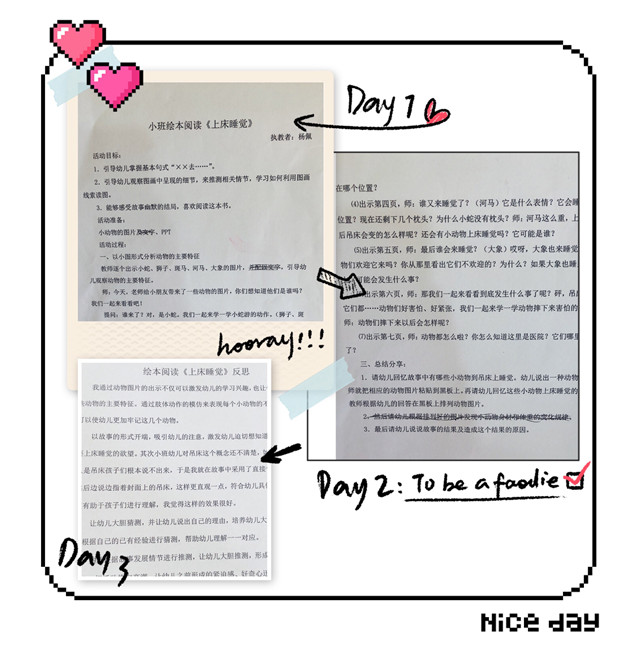 Day 1
小班绘本阅读《上床睡觉》
执教者：杨佩
活动目标：
1．引导幼儿掌握基本句式“××去……”。
2．引导幼儿观察图画中呈现的细节，来推测相关情节，学习如何利用图画
线索读图。
3．能够感受故事幽默的结局，喜欢阅读这本书。
活动准备：
小动物的图片及汉字、PPT
活动过程：
一、以小图形式分析动物的主要特征
教师逐个出示小蛇、狮子、斑马、河马、大象的图片，并配画汉字，引导幼
儿观察动物的主要特征。
师：今天，老师给小朋友带来了一些动物的图片，你们想知道他们是谁吗？
我们一起来看看吧！
提问：谁来了？对，是小蛇。我们一起来学一学小蛇游的动作。（狮子、斑
hooray!!!
在哪个位置？
(4)出示第四页，师：谁又来睡觉了？（河马）它是什么表情？它会睡
位置？现在还剩下几个枕头？为什么小蛇没有枕头？师：河马这么重，上
后吊床会变的怎么样呢？还会有小动物上床睡觉吗？它可能是谁？
(5)出示第五页，师：最后谁会来睡觉？（大象）哎呀，大象也来睡觉
物们欢迎它来吗？你从那里看出它们不欢迎的？为什么？如果大象也睡
可能会发生什么事？
出示第六页，师：那我们一起来看看到底发生什么事了呢？砰，吊
它们都……动物们好害怕、好紧张，我们一起来学一学动物摔下来害怕的
师：动物们摔下来以后会怎样呢？
(7)出示第七页，师：动物都怎么啦？你怎么知道这里是医院？它们哪里
了？
三、总结分享：
1．请幼儿回忆故事中有哪些小动物到吊床上睡觉。幼儿说出一种动物
师就把相应的动物图片粘贴到黑板上。再请幼儿回忆这些小动物上床睡觉的
教师根据幼儿的回答在黑板上排列动物图片。
2．然后请幼儿根据排列好的图片发现小动物身材和体重的变化规律。
3．最后请幼儿说说故事的结果及造成这个结果的原因。
Day 2: To be a foodie
绘本阅读《上床睡觉》反思
我通过动物图片的出示不仅可以激发幼儿的学习兴趣，也让
动物的主要特征。通过肢体动作的模仿来表现每个动物的不
以使幼儿更加牢记这几个动物。
以故事的形式开端，吸引幼儿的注意，激发幼儿迫切想知道
上床睡觉的欲望。其次小班幼儿对吊床这个概念还不清楚，
是吊床孩子们根本说不出来，于是我就在故事中采用了直接
后边说边指着封面上的吊床，这样更直观一点，符合幼儿具
有助于孩子们进行理解，我觉得这样的效果很好。
让幼儿大胆猜测，并让幼儿说出自己的理由，培养幼儿大
根据自己的已有经验进行猜测，帮助幼儿理解一一对应。
故事发展情节进行推测，让幼儿大胆推测，形成
Day 3
Nice day